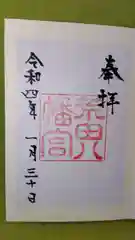 奉拝
幡宮
令和四年 一月三十日